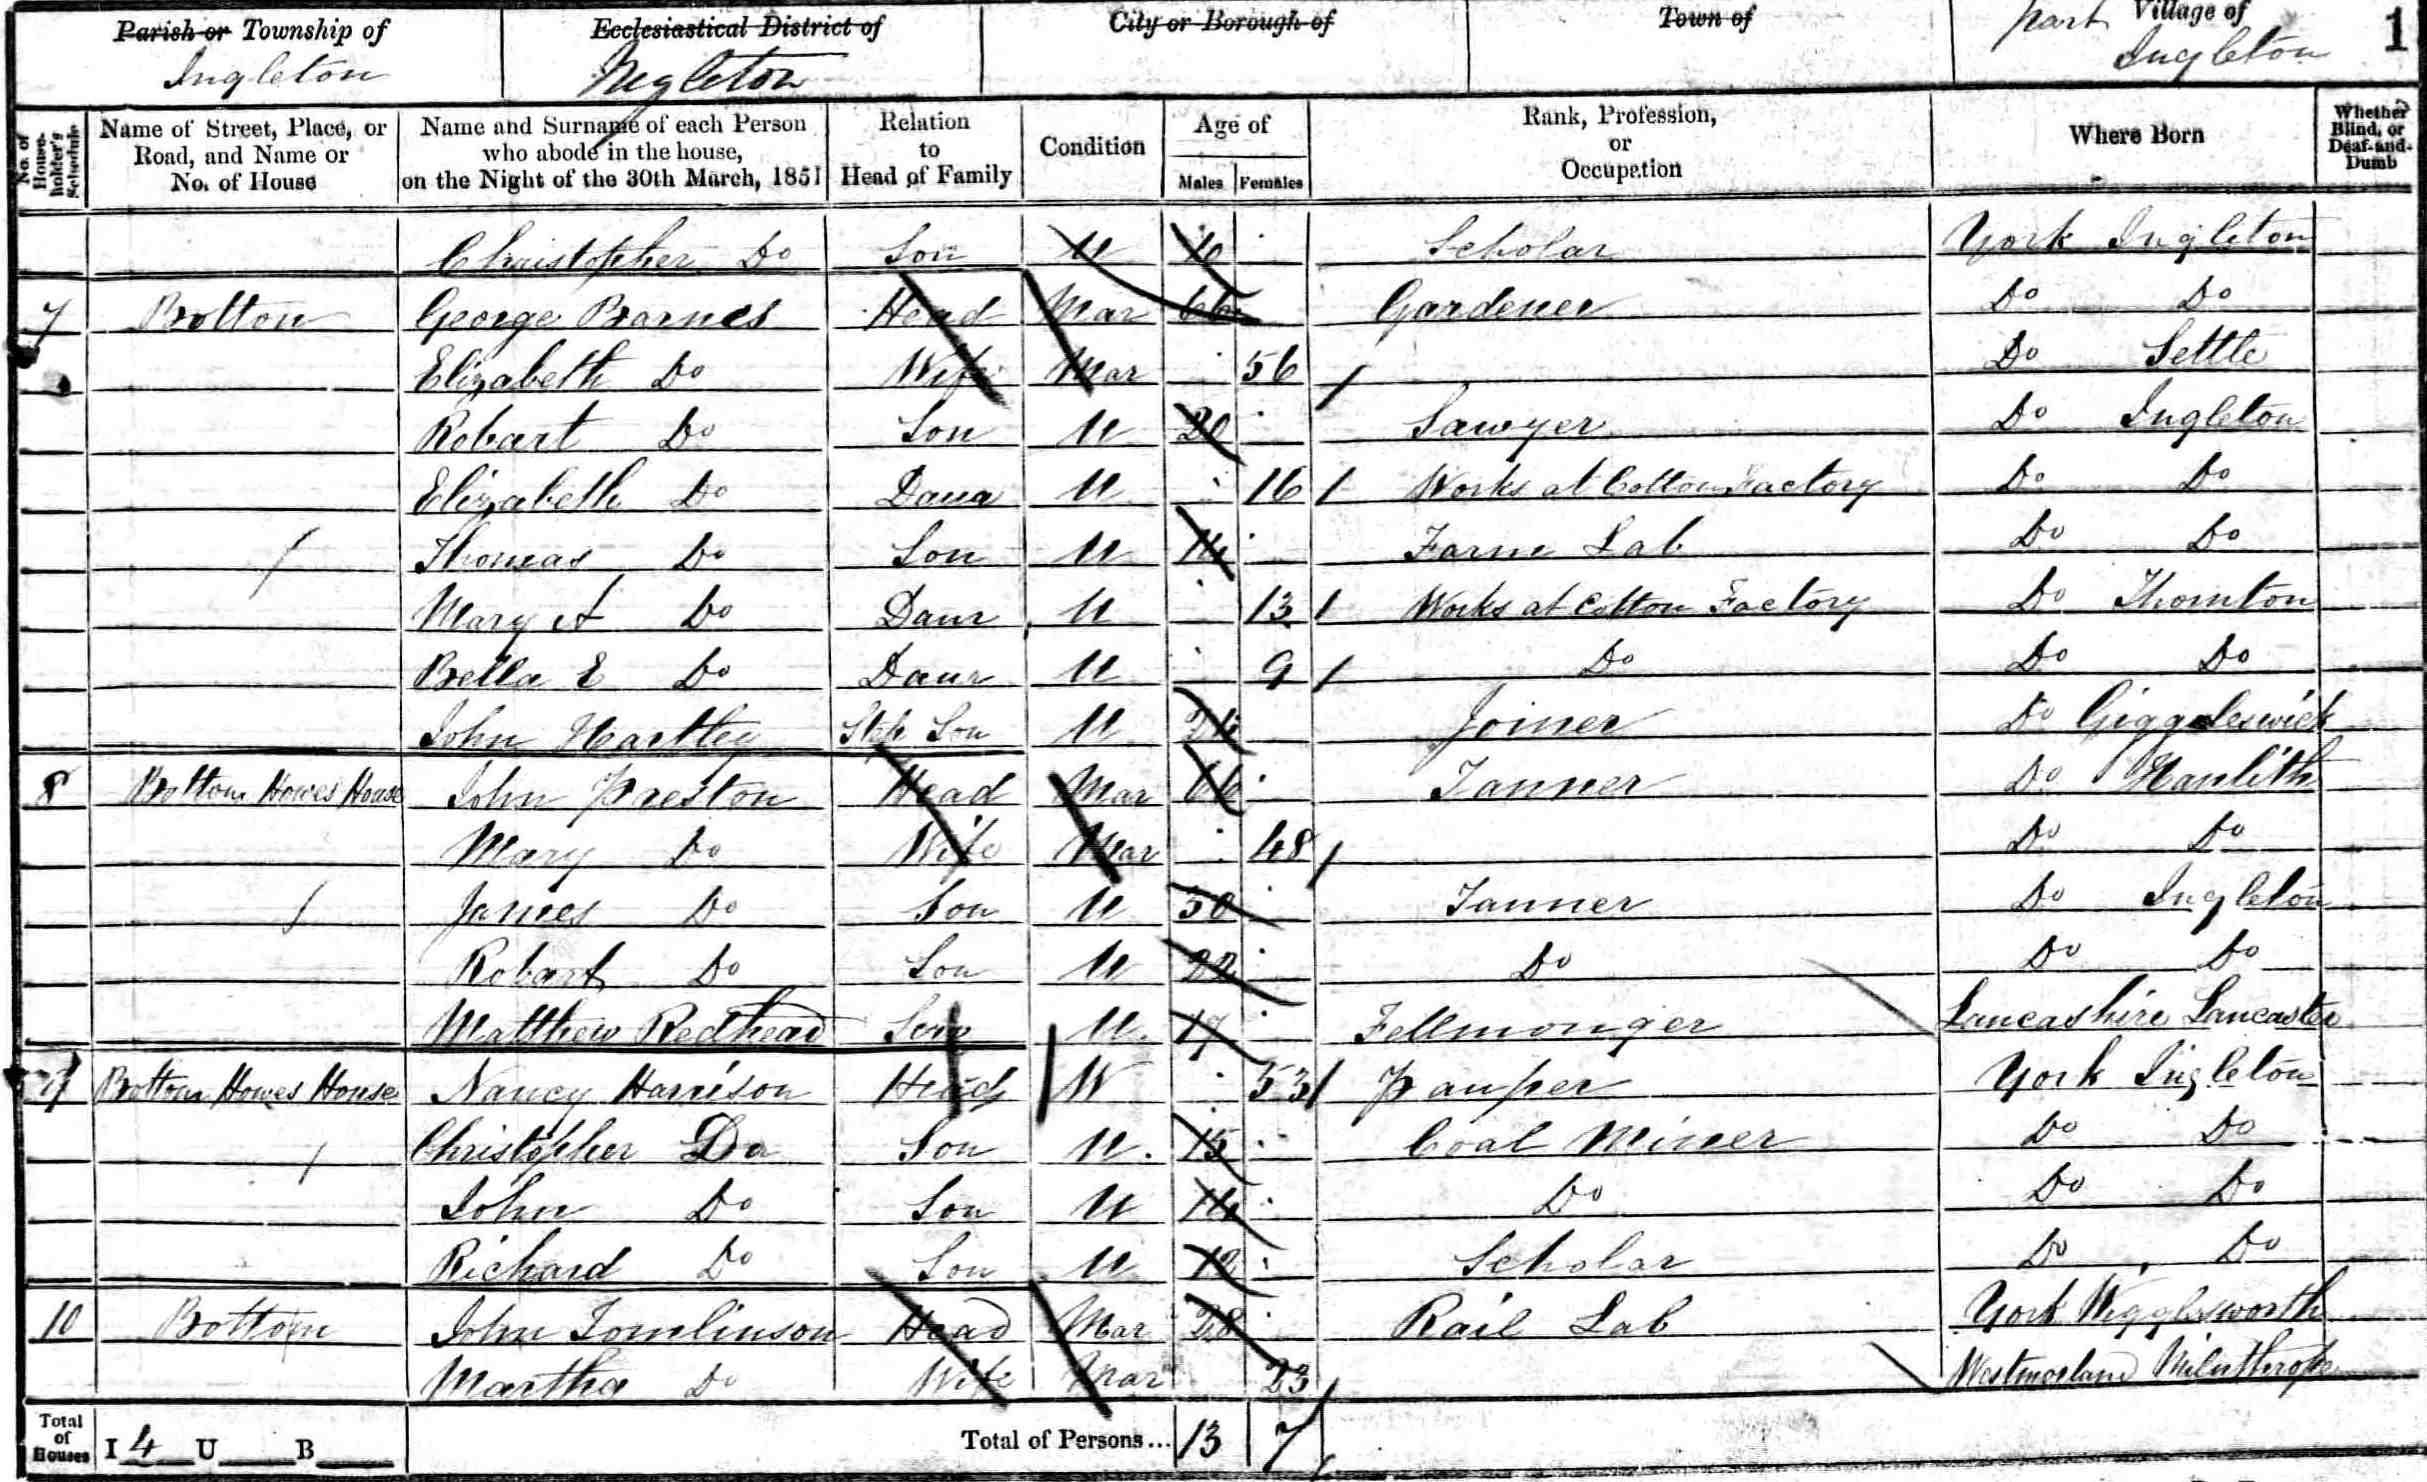 Parish or Township of Ecclesiastical District of City or Borough of Town of part Village of 1
Ingleton Ingleton Ingleton
No. of House-holder's Schedule Name of Street, Place, or Road, and Name or No. of House Name and Surname of each Person who abode in the house, on the Night of the 30th March, 1851 Relation to Head of Family Condition Age of Males Females Rank, Profession, or Occupation Where Born Whether Blind, or Deaf-and-Dumb
Christopher Do Son U 10 Scholar York Ingleton
7 Bottom George Barnes Head Mar 66 Gardener Do Do
Elizabeth Do Wife Mar 56 Do Settle
Robart Do Son U 20 Sawyer Do Ingleton
Elizabeth Do Daur U 16 Works at Cotton Factory Do Do
Thomas Do Son U 14 Farm Lab Do Do
Mary A Do Daur U 13 Works at Cotton Factory Do Thornton
Bella E Do Daur U 9 Do Do Do
John Hartley Step Son U 24 Joiner Do Giggleswick
8 Bottom Howes House John Preston Head Mar 66 Tanner Do Hanlith
Mary Do Wife Mar 48 Do Do
James Do Son U Tanner Do Ingleton
Robart Do Son U 22 Do Do Do
Matthew Redhead Serv U 17 Fellmonger Lancashire Lancaster
9 Bottom Howes House Nancy Harrison Head W 53 Pauper York Ingleton
Christopher Do Son U 15 Coal Miner Do Do
John Do Son U 14 Do Do Do
Richard Do Son U 12 Scholar Do Do
10 Bottom John Tomlinson Head Mar 28 Rail Lab York Wigglesworth
Martha Do Wife Mar 23 Westmorland Milnthrope
Total of Houses I 4 U B Total of Persons... 13 7